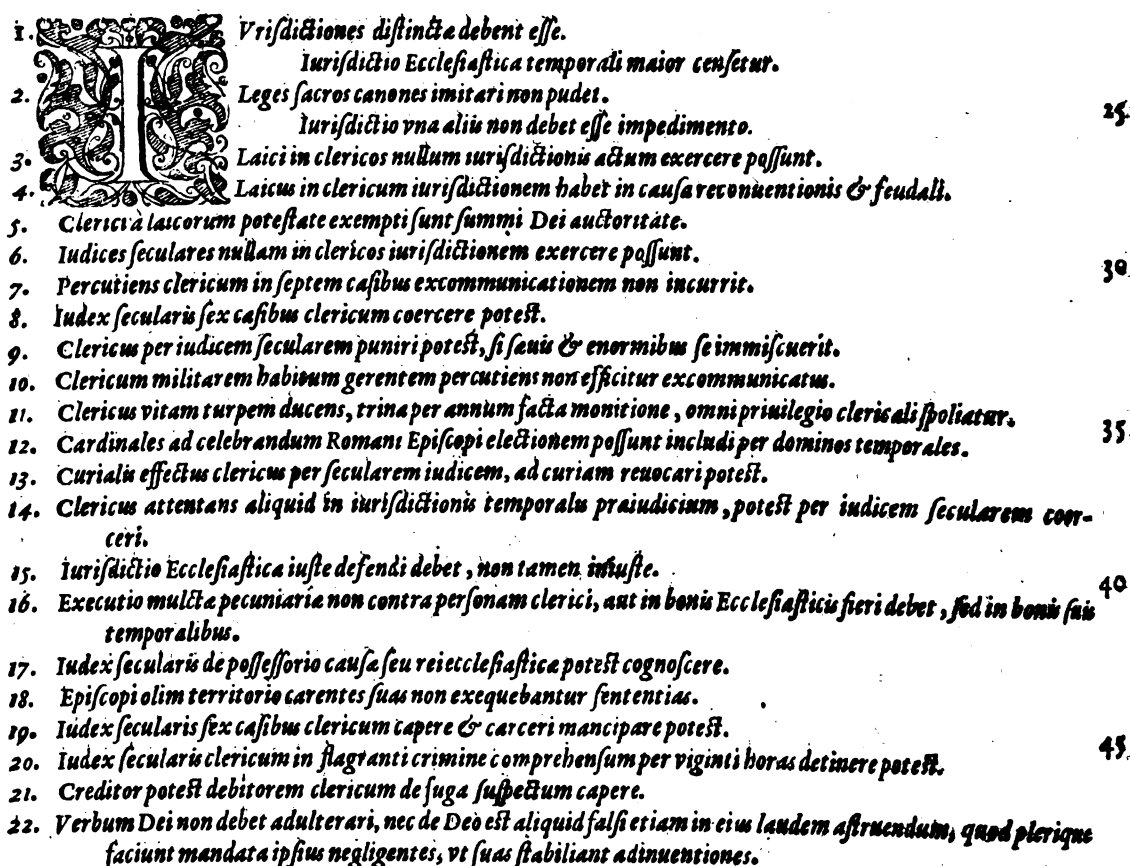 1. IVriſdictiones diſtinctæ debent eſſe.
Iuriſdictio Eccleſiaſtica temporali maior cenſetur.
2. Leges ſacros canones imitari non pudet.
Iuriſdictio vna aliis non debet eſſe impedimento. 25
3. Laici in clericos nullum iuriſdictionis actum exercere poſſunt.
4. Laicus in clericum iuriſdictionem habet in cauſa reconuentionis & feudali.
5. Clerici à laicorum poteſtate exempti ſunt ſummi Dei auctoritate.
6. Iudices ſeculares nullam in clericos iuriſdictionem exercere poſſunt.
7. Percutiens clericum in ſeptem caſibus excommunicationem non incurrit. 30
8. Iudex ſecularis ſex caſibus clericum coercere poteſt.
9. Clericus per iudicem ſecularem puniri poteſt, ſi ſæuis & enormibus ſe immiſcuerit.
10. Clericum militarem habitum gerentem percutiens non efficitur excommunicatus.
11. Clericus vitam turpem ducens, trina per annum facta monitione, omni priuilegio clericali ſpoliatur.
12. Cardinales ad celebrandum Romani Epiſcopi electionem poſſunt includi per dominos temporales. 35
13. Curialis effectus clericus per ſecularem iudicem, ad curiam reuocari poteſt.
14. Clericus attentans aliquid in iuriſdictionis temporalis præiudicium, poteſt per iudicem ſecularem coer-
ceri.
15. Iuriſdictio Eccleſiaſtica iuſte defendi debet, non tamen iniuſte.
16. Executio mulctæ pecuniariæ non contra perſonam clerici, aut in bonis Eccleſiaſticis fieri debet, ſed in bonis ſuis 40
temporalibus.
17. Iudex ſecularis de poſſeſſorio cauſæ ſeu rei eccleſiaſticæ poteſt cognoſcere.
18. Epiſcopi olim territorio carentes ſuas non exequebantur ſententias.
19. Iudex ſecularis ſex caſibus clericum capere & carceri mancipare poteſt.
20. Iudex ſecularis clericum in flagranti crimine comprehenſum per viginti horas detinere poteſt. 45
21. Creditor poteſt debitorem clericum de fuga ſuſpectum capere.
22. Verbum Dei non debet adulterari, nec de Deo eſt aliquid falſi etiam in eius laudem aſtruendum, quod plerique
faciunt mandata ipſius negligentes, vt ſuas ſtabiliant adinuentiones.